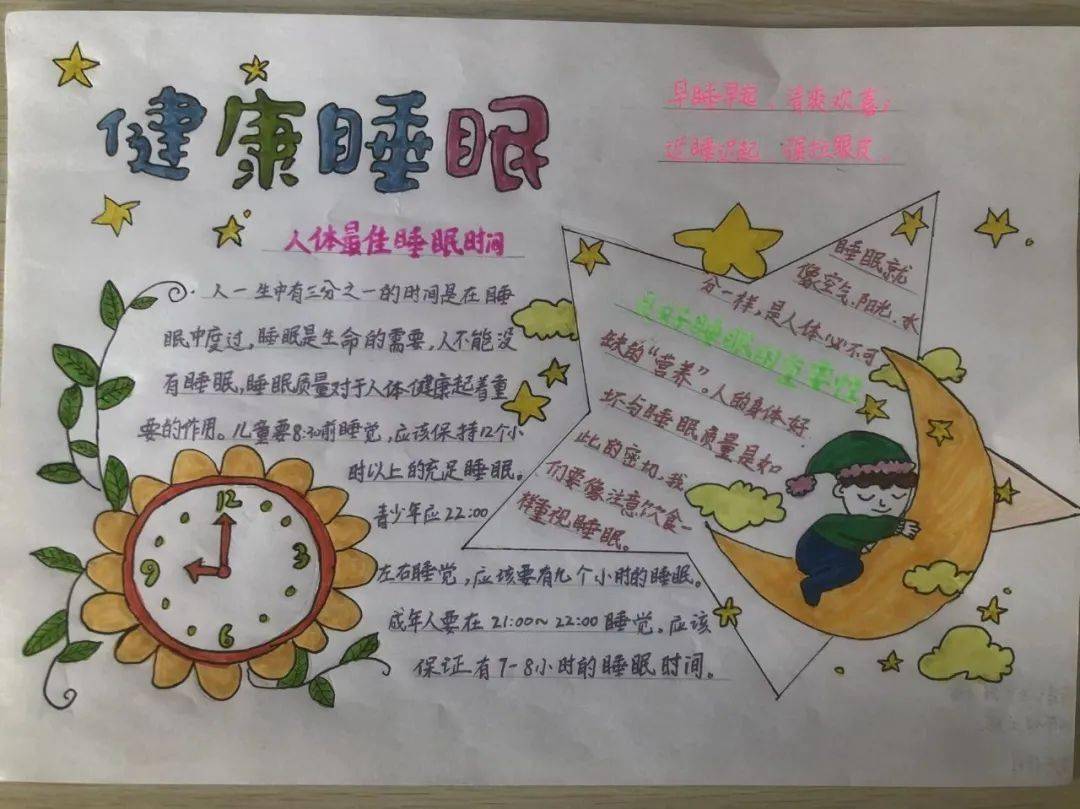 健康睡眠
早睡早起，清爽欢喜；
迟睡迟起 强拉眼皮.
人体最佳睡眠时间
人一生中有三分之一的时间是在睡
眠中度过，睡眠是生命的需要，人不能没
有睡眠，睡眠质量对于人体健康起着重
要的作用。儿童要8:30前睡觉，应该保持12个小
时以上的充足睡眠。
青少年应22:00
左右睡觉，应该要有九个小时的睡眠。
成年人要在21:00~22:00睡觉。应该
保证有7-8小时的睡眠时间。
良好睡眠的重要性
睡眠就
像空气、阳光、水
分一样，是人体必不可
缺的“营养”。人的身体好
坏与睡眠质量是如
此的密切，我
们要像注意饮食一
样重视睡眠。
12
3
6
9